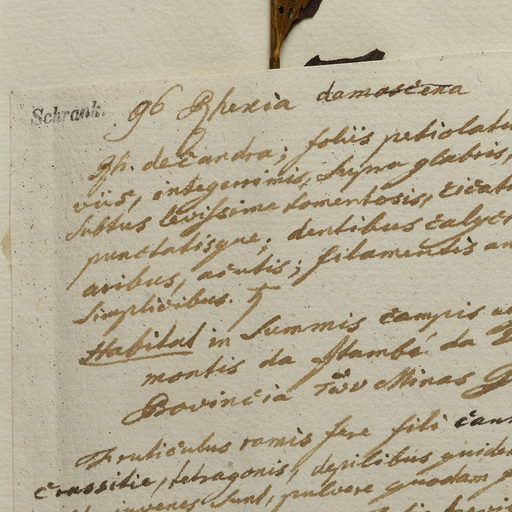 Schrank.
96 Rhexia damascena
Rh. decandra; foliis petiolatis
viis, integerrimis, supra glabris,
subtus levissime tomentosis, cicatri
punctatisque; dentibus calyc
aribus, acutis; filamentis an
simplicibus. ♄
Habitat in summis campis
montis da Itambé da
Provincia Minas
Fruticulus ramis fere fili
crassitie, tetragonis, depilibus quidem
juvenes sunt, pulvere quodam